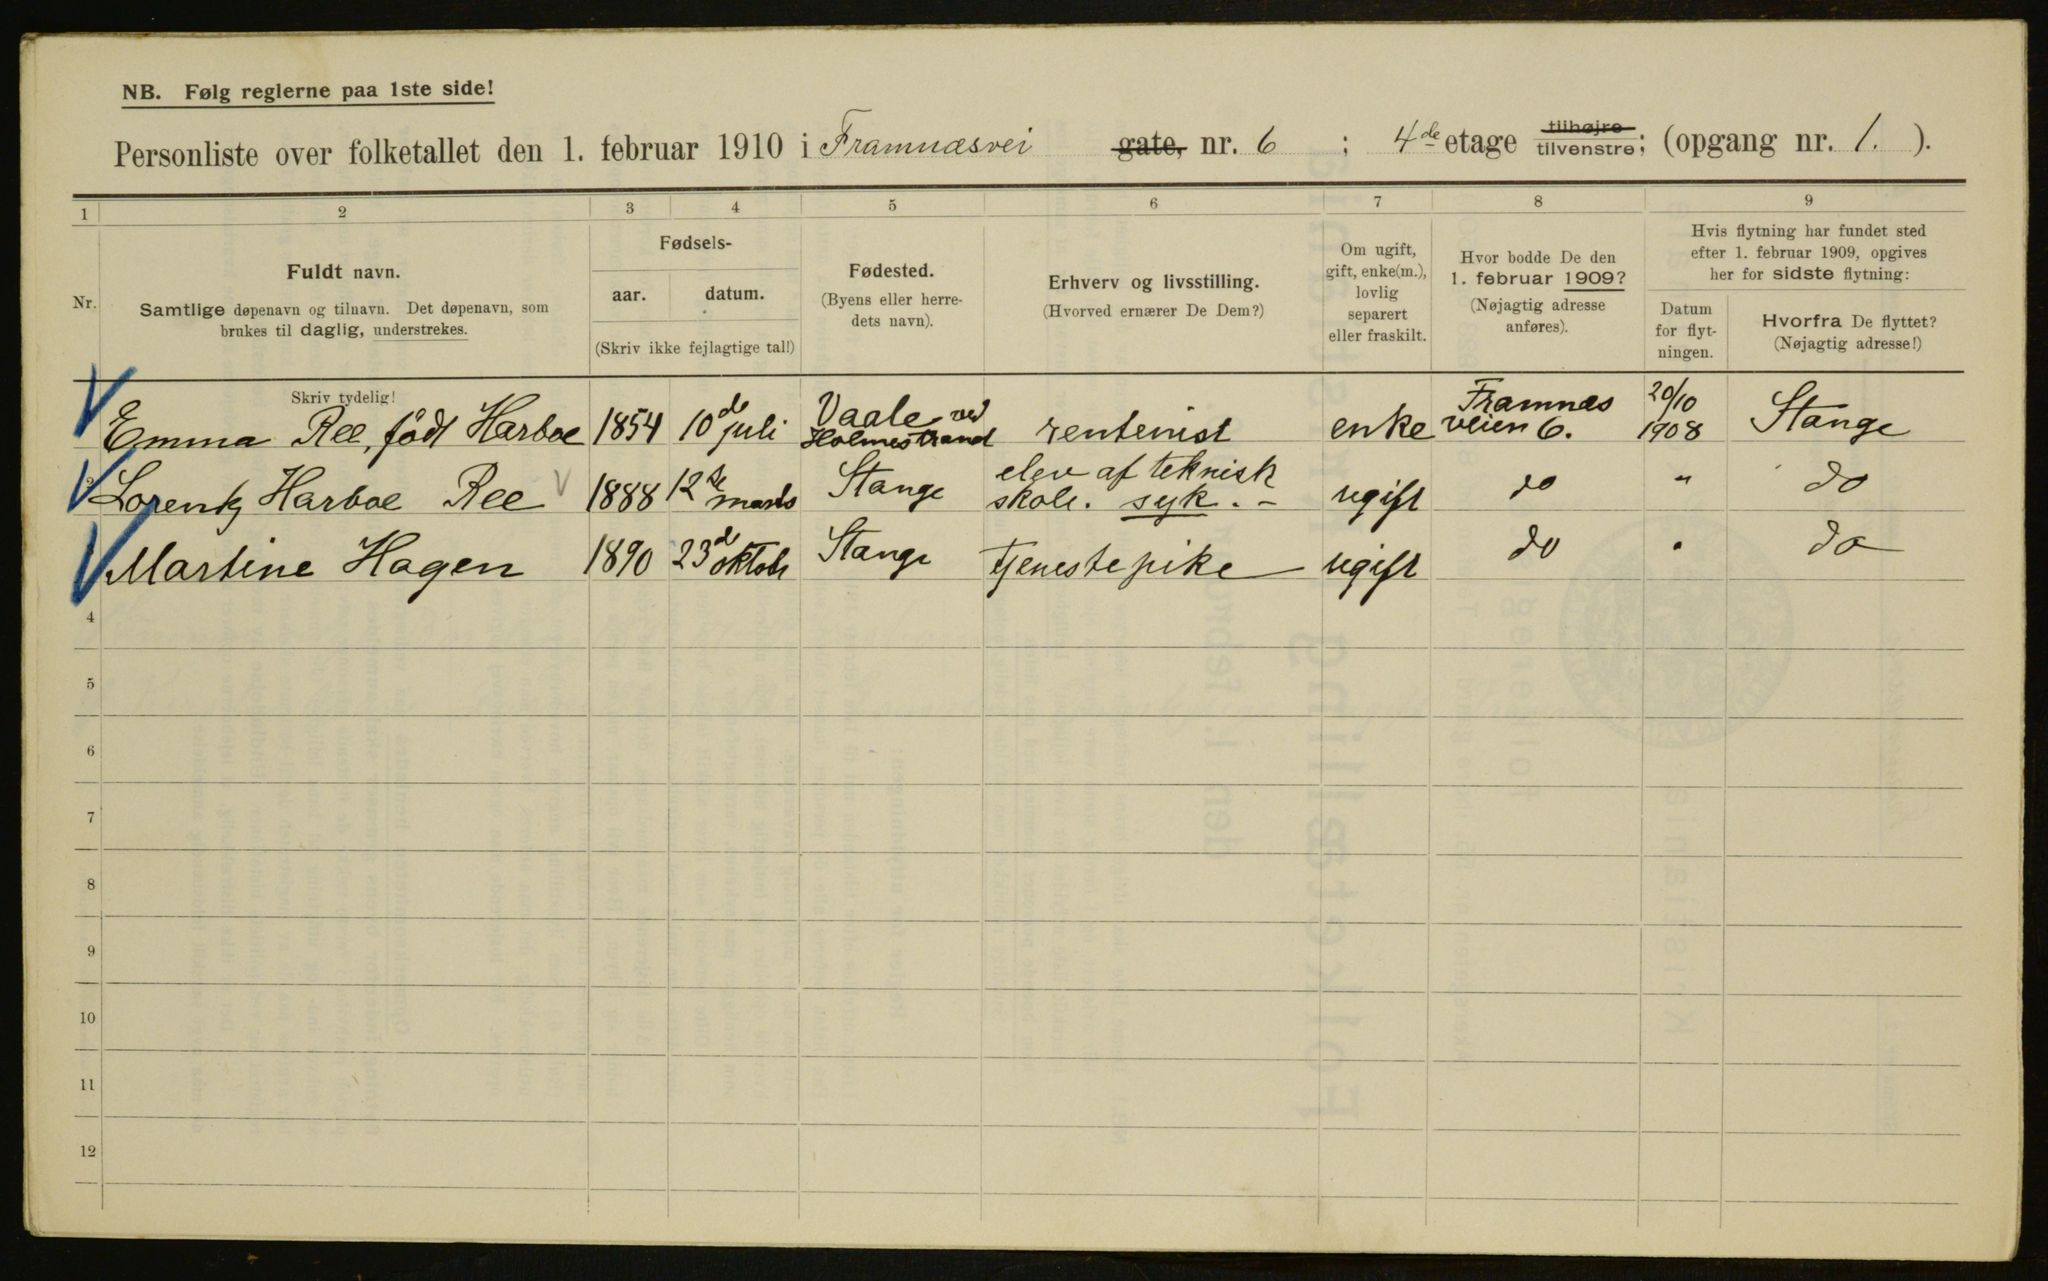 NB. Følg reglerne paa 1ste side!
Personliste over folketallet den 1. februar 1910 i Framnæsvei gate, nr. 6 ; 4de etage tilhøjre tilvenstre; (opgang nr. 1. ).
1 2 3 4 5 6 7 8 9
Nr.
Fuldt navn.
Samtlige døpenavn og tilnavn. Det døpenavn, som
brukes til daglig, understrekes.
Fødsels-
aar. datum.
(Skriv ikke fejlagtige tal!)
Fødested.
(Byens eller herre-
dets navn).
Erhverv og livsstilling.
(Hvorved ernærer De Dem?)
Om ugift,
gift, enke(m.),
lovlig
separert
eller fraskilt.
Hvor bodde De den
1. februar 1909?
(Nøjagtig adresse
anføres).
Hvis flytning har fundet sted
efter 1. februar 1909, opgives
her for sidste flytning:
Datum
for flyt-
ningen.
Hvorfra De flyttet?
(Nøjagtig adresse!)
Skriv tydelig!
Emma Ree, født Harboe 1854 10de juli Vaale ved Holmestrand rentenist enke Framnæs veien 6. 20/10 1908 Stange
2 Lorentz Harboe Ree 1888 12te marts Stange elev af teknisk skole. syk. - ugift do " do
Martine Hagen 1890 23de oktob Stange tjenestepike ugift do " do
4
5
6
7
8
9
10
11
12